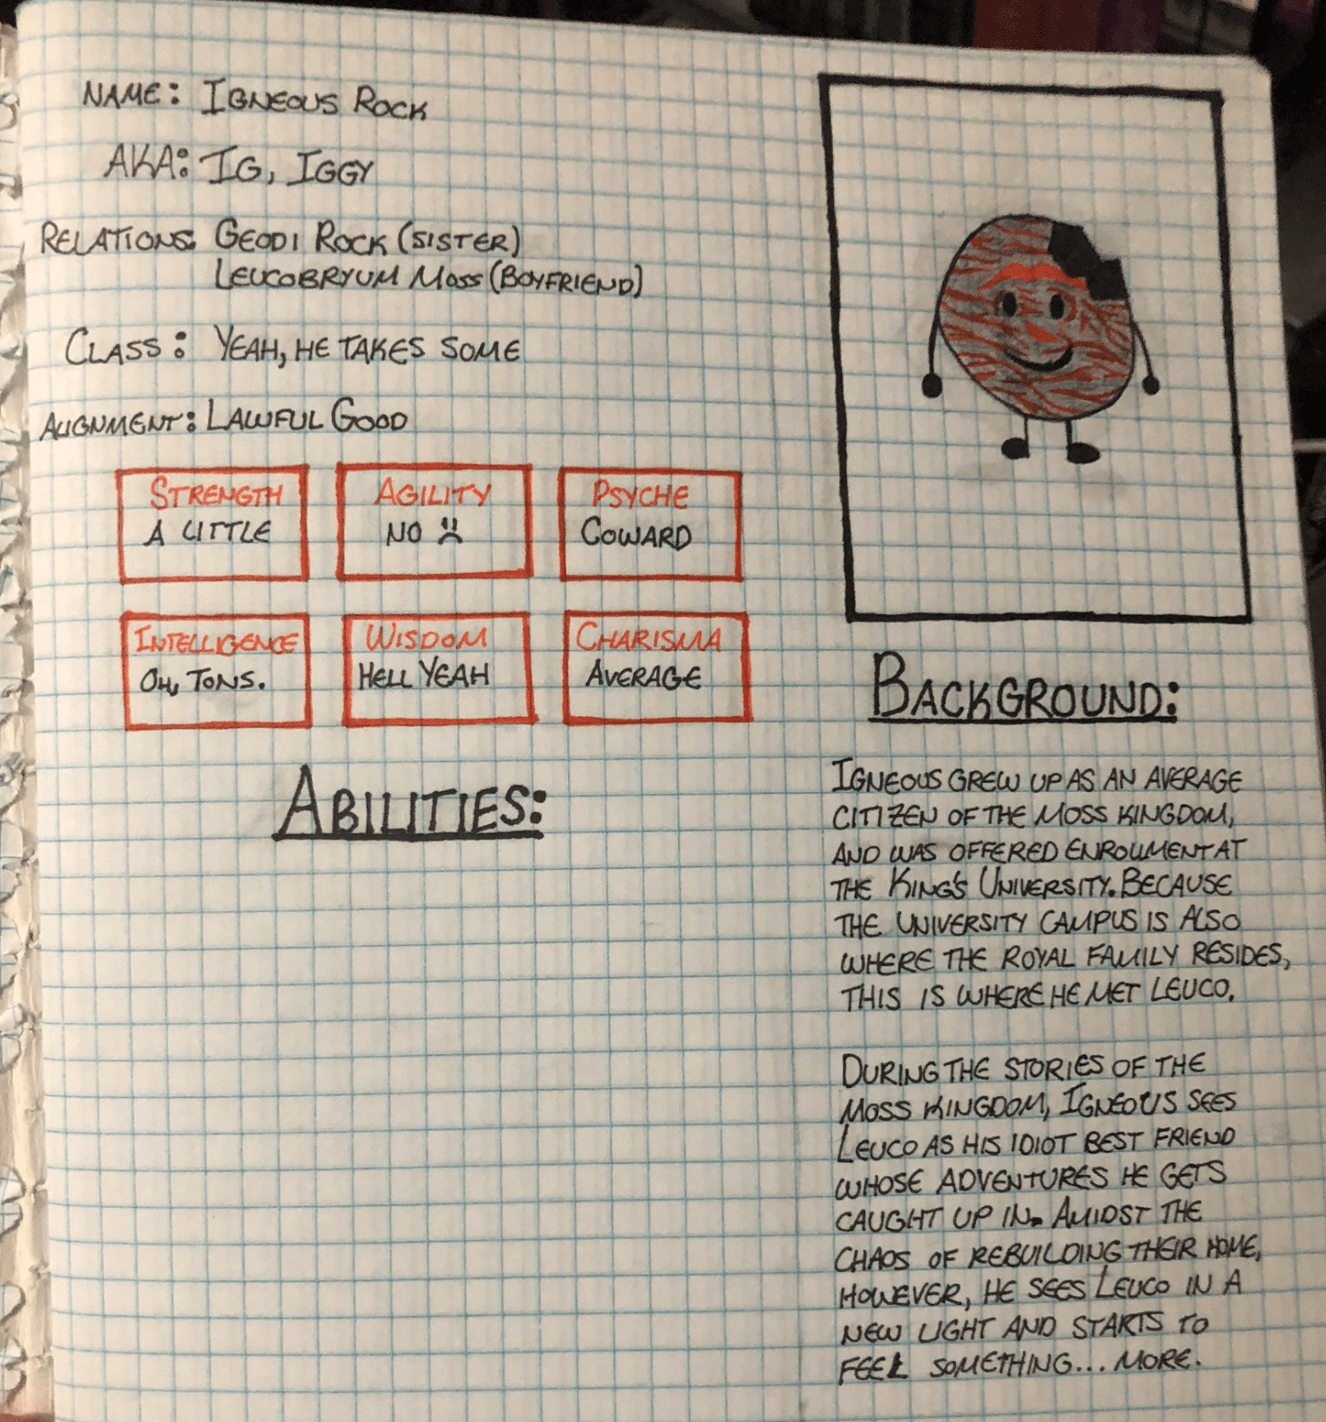 NAME: IGNEOUS ROCK
AKA: IG, IGGY
RELATIONS: GEODI ROCK (SISTER)
LEUCOBRYUM MOSS (BOYFRIEND)
CLASS: YEAH, HE TAKES SOME
ALIGNMENT: LAWFUL GOOD
STRENGTH
A LITTLE
AGILITY
NO :(
PSYCHE
COWARD
INTELLIGENCE
OH, TONS.
WISDOM
HELL YEAH
CHARISMA
AVERAGE
ABILITIES:
BACKGROUND:
IGNEOUS GREW UP AS AN AVERAGE
CITIZEN OF THE MOSS KINGDOM,
AND WAS OFFERED ENROLLMENT AT
THE KING'S UNIVERSITY. BECAUSE
THE UNIVERSITY CAMPUS IS ALSO
WHERE THE ROYAL FAMILY RESIDES,
THIS IS WHERE HE MET LEUCO.
DURING THE STORIES OF THE
MOSS KINGDOM, IGNEOUS SEES
LEUCO AS HIS IDIOT BEST FRIEND
WHOSE ADVENTURES HE GETS
CAUGHT UP IN. AMIDST THE
CHAOS OF REBUILDING THEIR HOME,
HOWEVER, HE SEES LEUCO IN A
NEW LIGHT AND STARTS TO
FEEL SOMETHING... MORE.